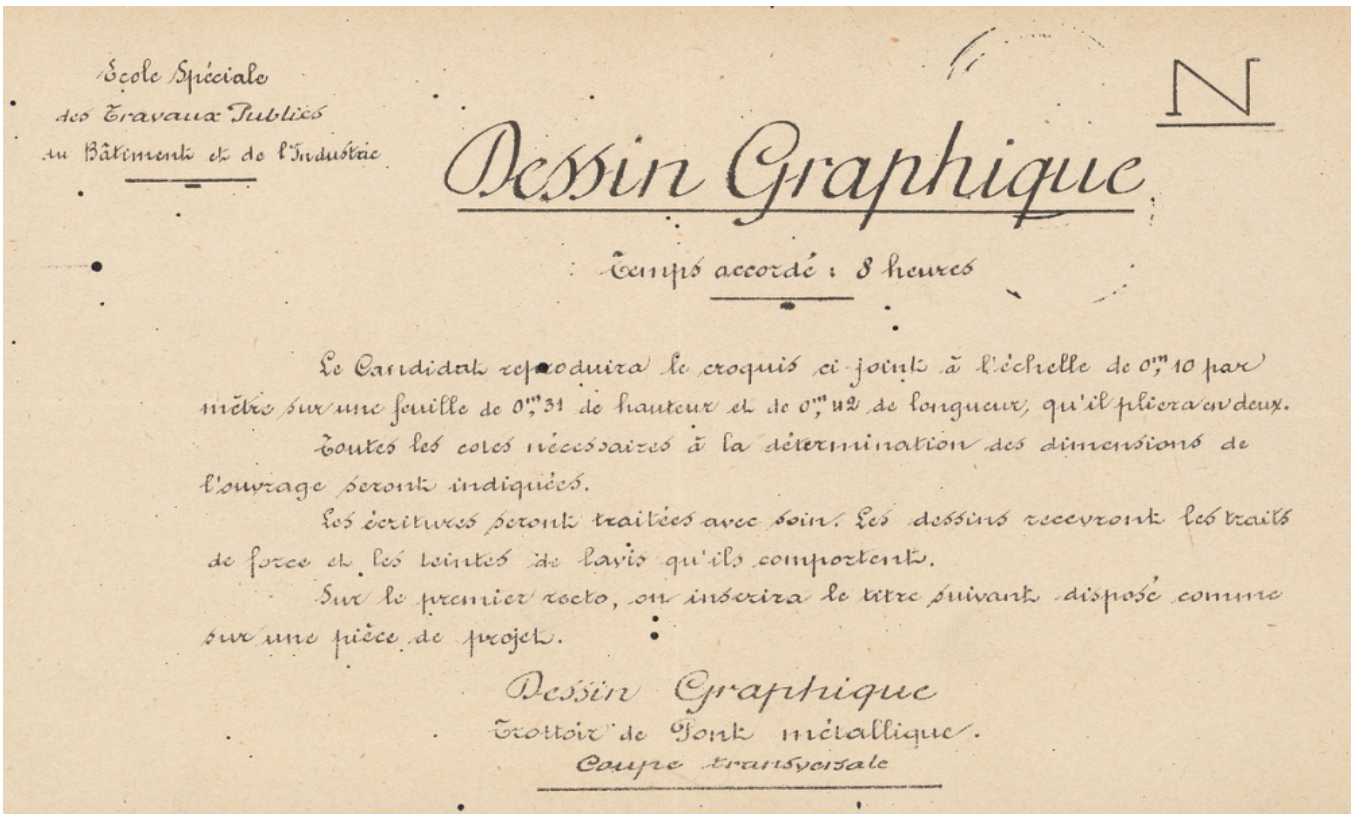 Ecole Spéciale
des Travaux Publics
du Bâtiment et de l'Industrie
N
Dessin Graphique
Temps accordé : 8 heures
Le Candidat reproduira le croquis ci-joint à l'échelle de 0,m10 par
mètre sur une feuille de 0,m31 de hauteur et de 0,m42 de longueur, qu'il pliera en deux.
Toutes les cotes nécessaires à la détermination des dimensions de
l'ouvrage seront indiquées.
Les écritures seront traitées avec soin. Les dessins recevront les traits
de force et les teintes de lavis qu'ils comportent.
Sur le premier recto, on inscrira le titre suivant disposé comme
sur une pièce de projet.
Dessin Graphique
Trottoir de Pont métallique.
Coupe transversale